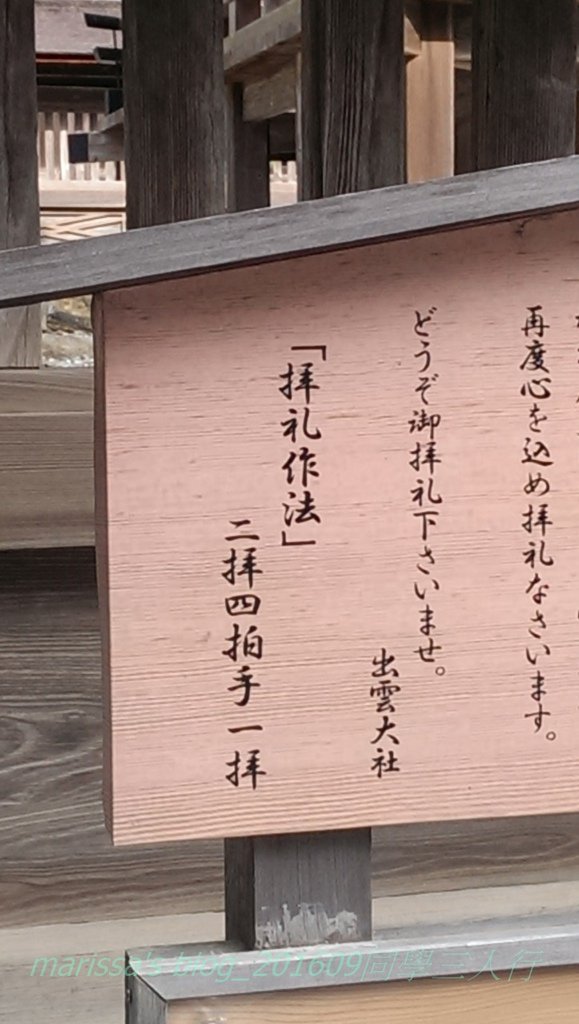 再度心を込め拝礼なさいます。
どうぞ御拝礼下さいませ。
出雲大社
「拝礼作法」
二拝四拍手一拝
marissa's blog_201609同學三人行